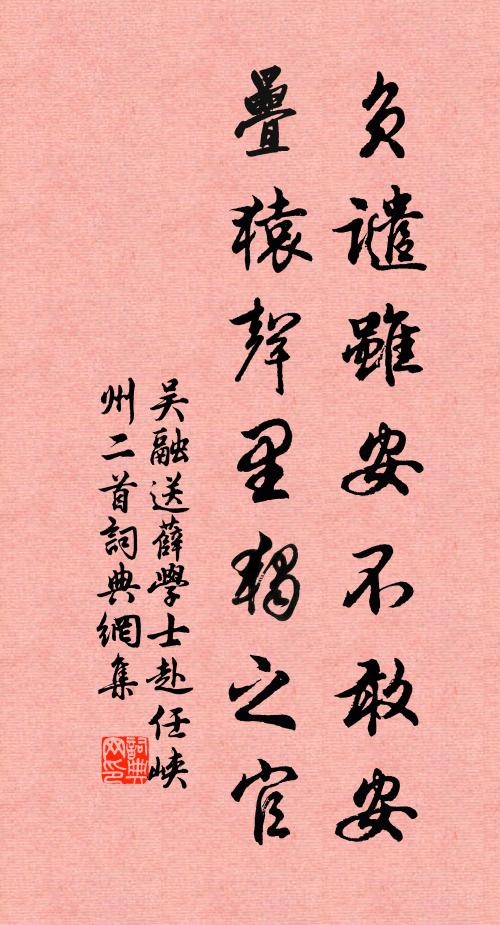 負譴雖安不敢安
疊猿聲里獨之官
吳融送薛學士赴任峽
州二首詞典網集
詞典網印